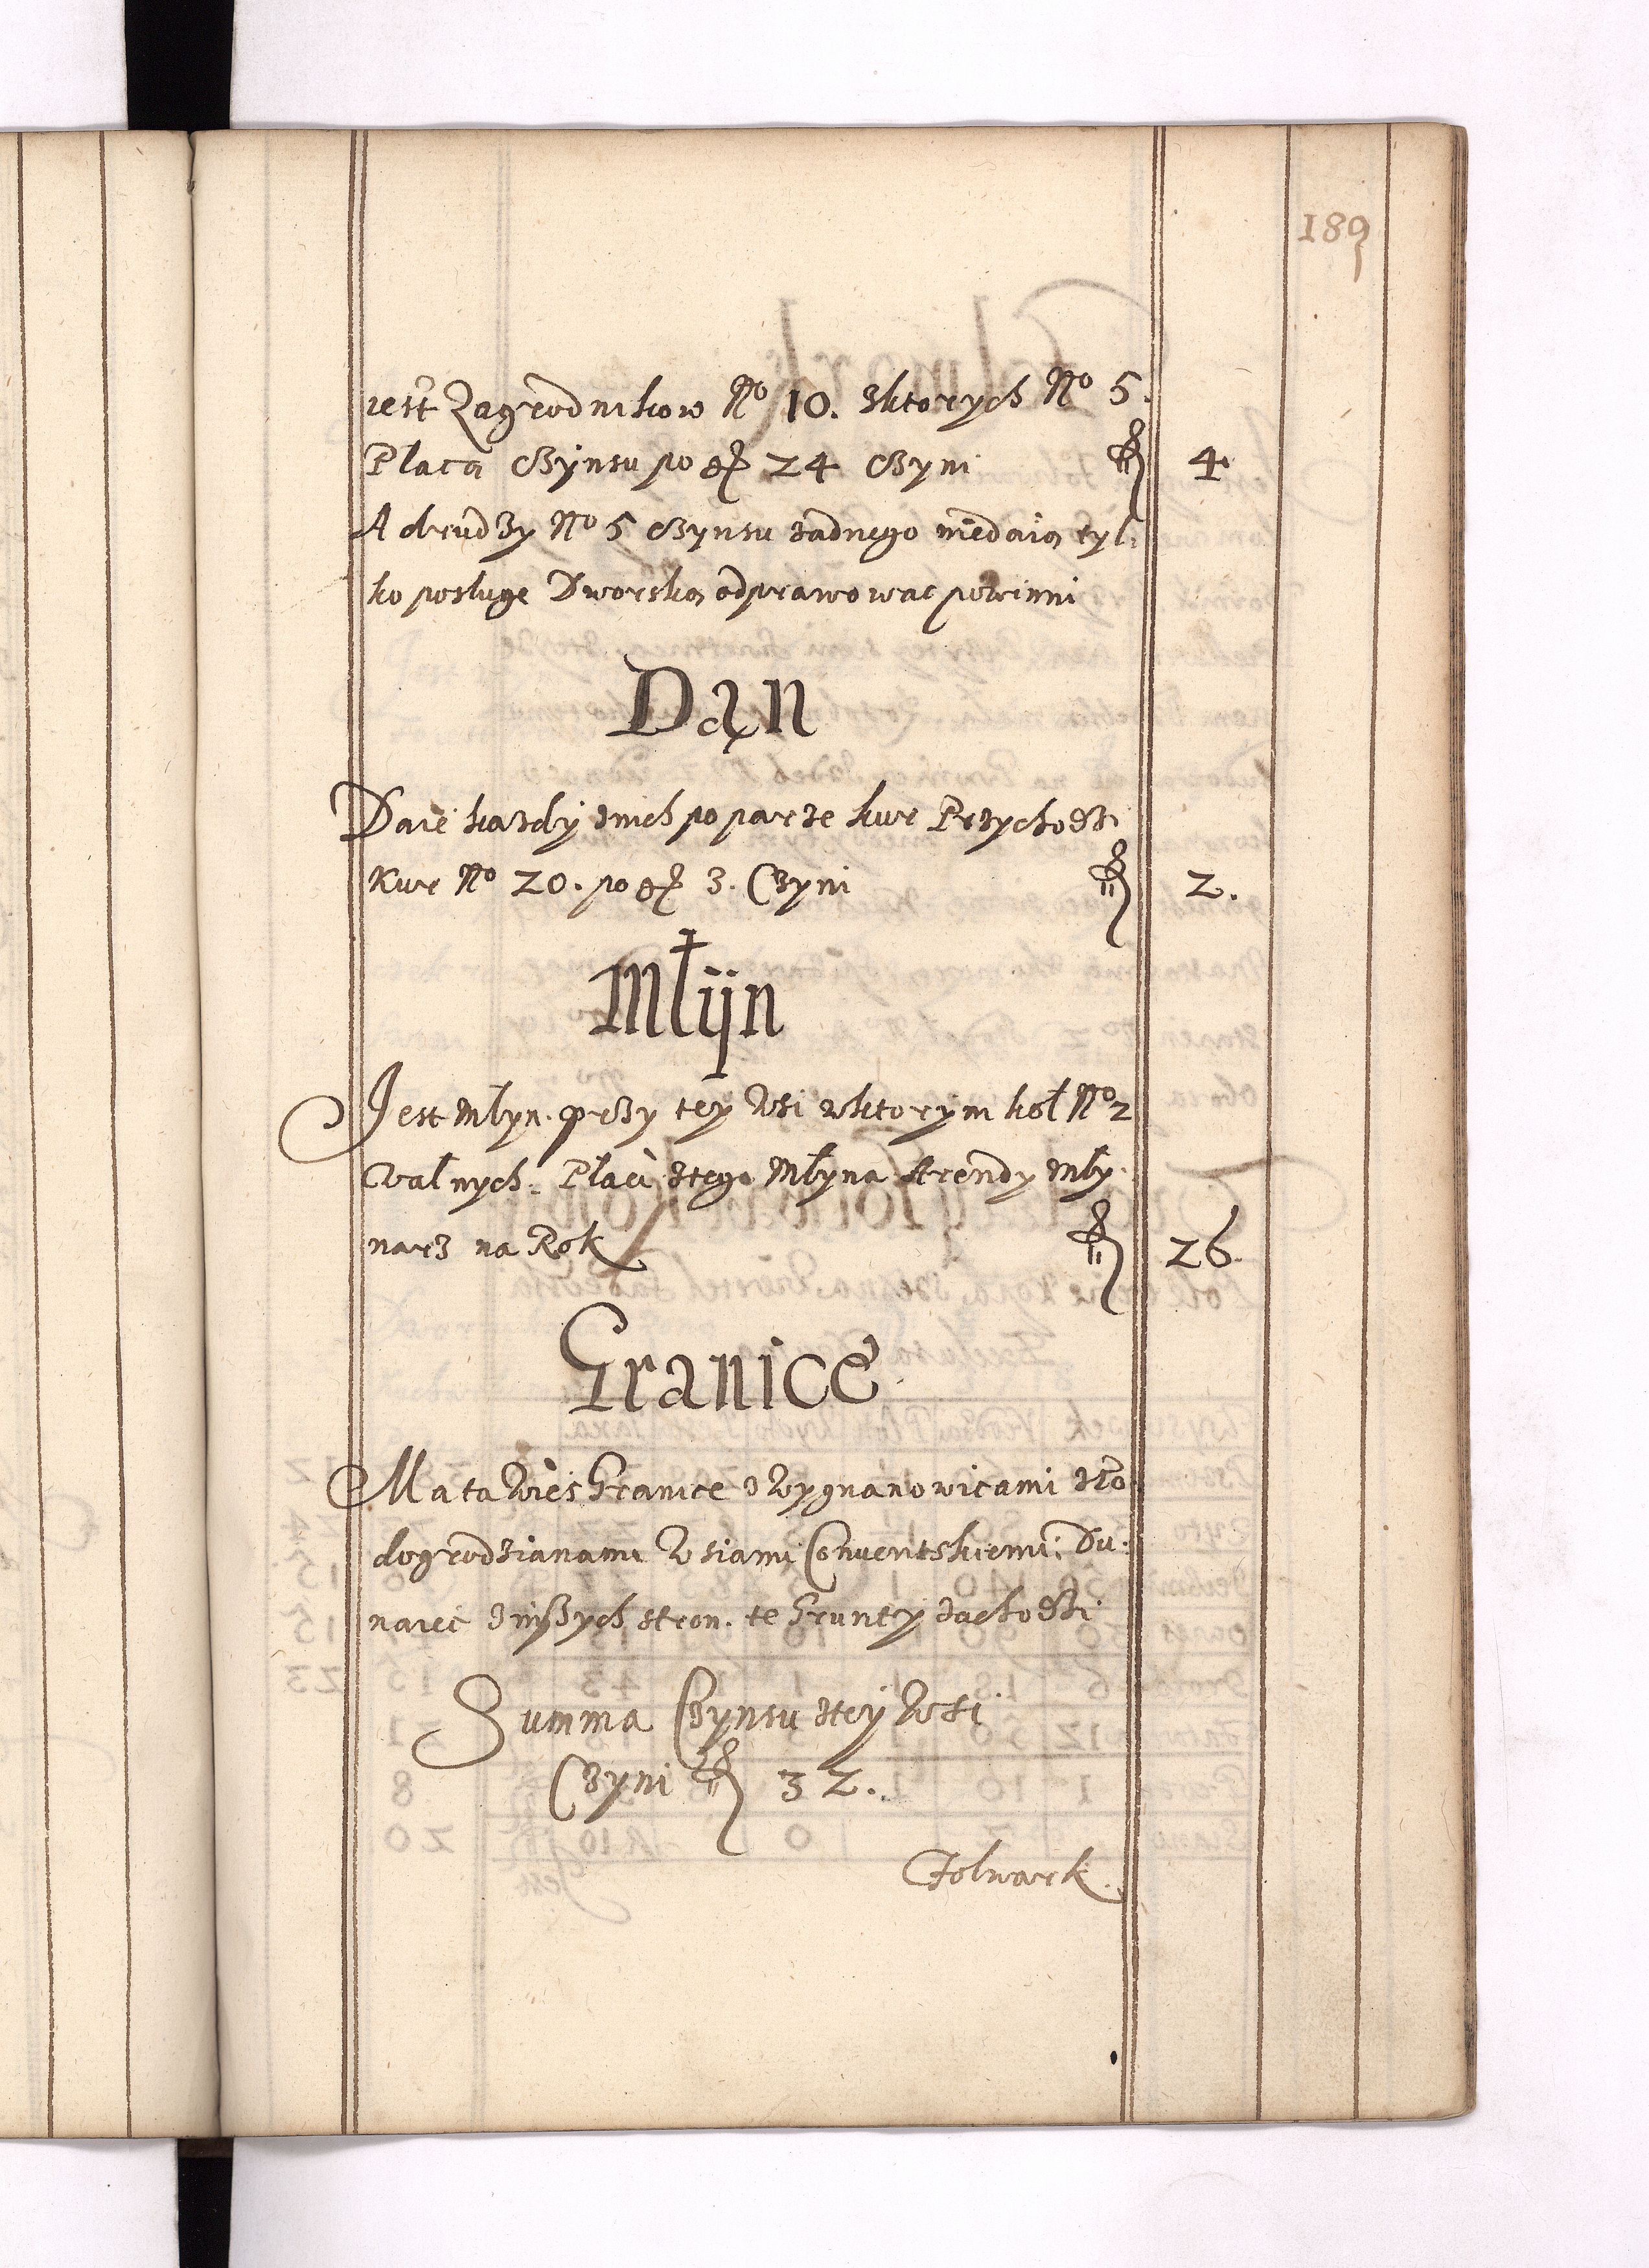 189
iest Zagrodnikow No 10. zktorych No 5.
Płacą Czÿnsu po gr 24 Czyni fl 4
A drudzy No 5 Czynsu zadnego niedaią tyl:
ko posługe Dworską odprawowac powinni
Dąn
Daie kazdÿ znich po parze kur Przychodzi
Kur No 20. po gr 3. Czyni fl 2.
Młÿn
Jest Młyn przy tey Wsi wktorym kół No 2
Walnych. Płaci ztego Młyna Arendy Mły:
narz na Rok fl 26.
Granice
Ma ta Wieś Granice z Wygnanowicami
dogrodzianami Wsiami Conventskiemi: Du:
naiec zinszych stron te Grunty zachodzi
Summa Czynsu ztey Wsi
Czyni fl 32.
Folwark.